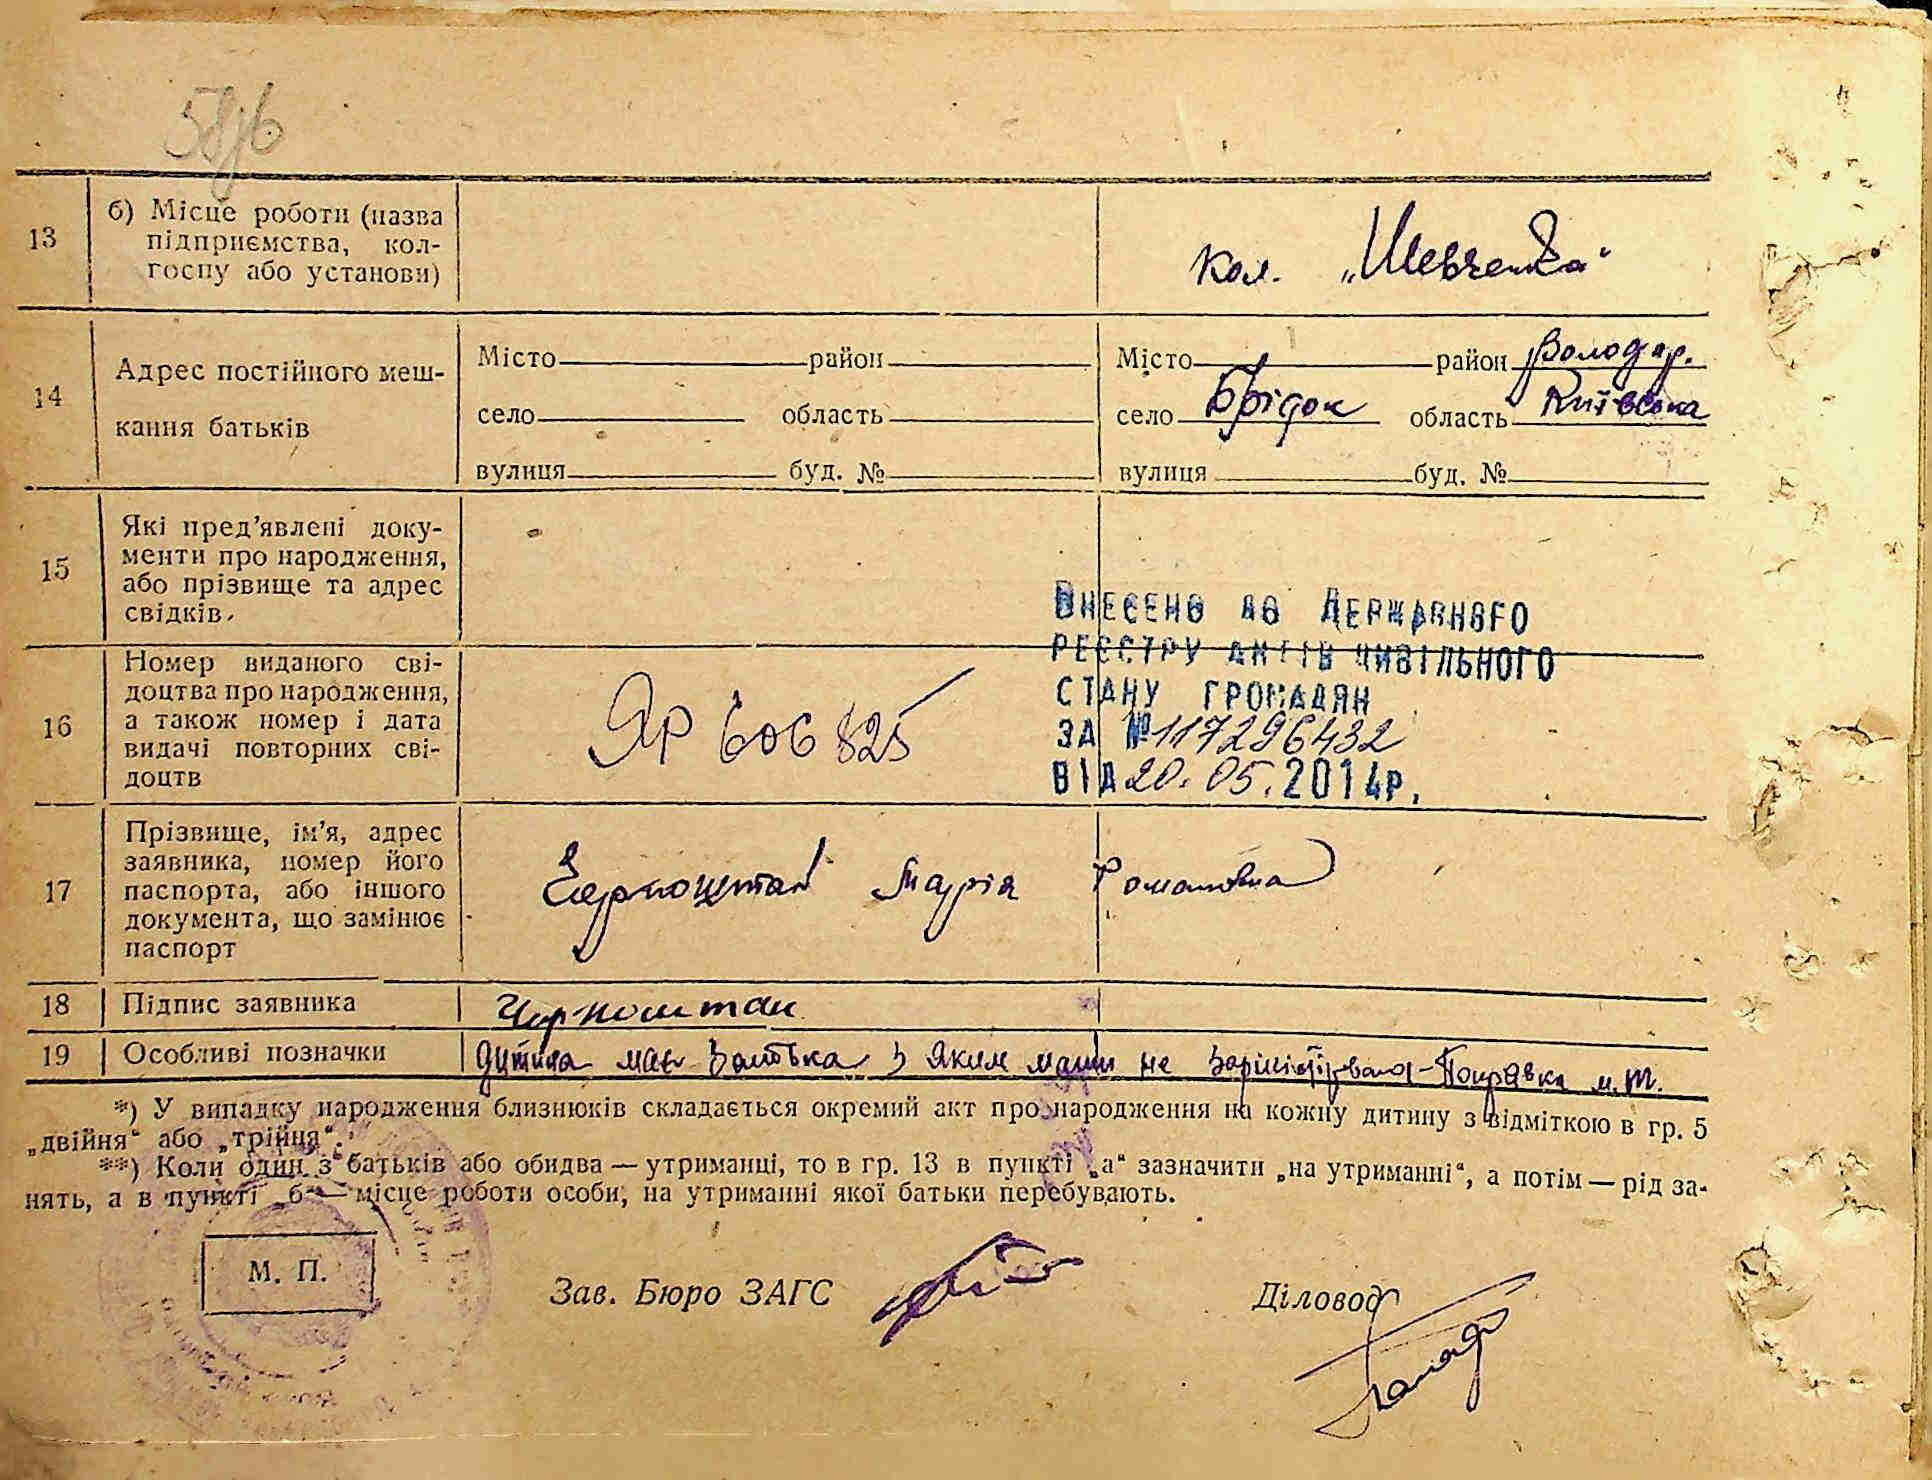 13
б) Місце роботи (назва
підприємства, кол-
госпу або установи)
кол. „Шевченка"
14
Адрес постійного меш-
кання батьків
Місто район
село область
вулиця буд. №
Місто район Володар.
село Брідок область Київська
вулиця буд. №
15
Які пред'явлені доку-
менти про народження,
або прізвище та адрес
свідків.
16
Номер виданого сві-
доцтва про народження,
а також номер і дата
видачі повторних сві-
доцтв
ЯР 606825
ВНЕСЕНО ДО ДЕРЖАВНОГО
РЕЄСТРУ АКТІВ ЦИВІЛЬНОГО
СТАНУ ГРОМАДЯН
ЗА №117296432
ВІД 20.05.2014р.
17
Прізвище, ім'я, адрес
заявника, номер його
паспорта, або іншого
документа, що замінює
паспорт
Марія Романовна
18 Підпис заявника
19 Особливі позначки
дитина має батька з яким мати не
*) У випадку народження близнюків складається окремий акт про народження на кожну дитину з відміткою в гр. 5
„двійня" або „трійця".
**) Коли один з батьків або обидва — утриманці, то в гр. 13 в пункті „а" зазначити „на утриманні", а потім — рід за-
нять, а в пункті „б" — місце роботи особи, на утриманні якої батьки перебувають.
М. П.
Зав. Бюро ЗАГС
Діловод